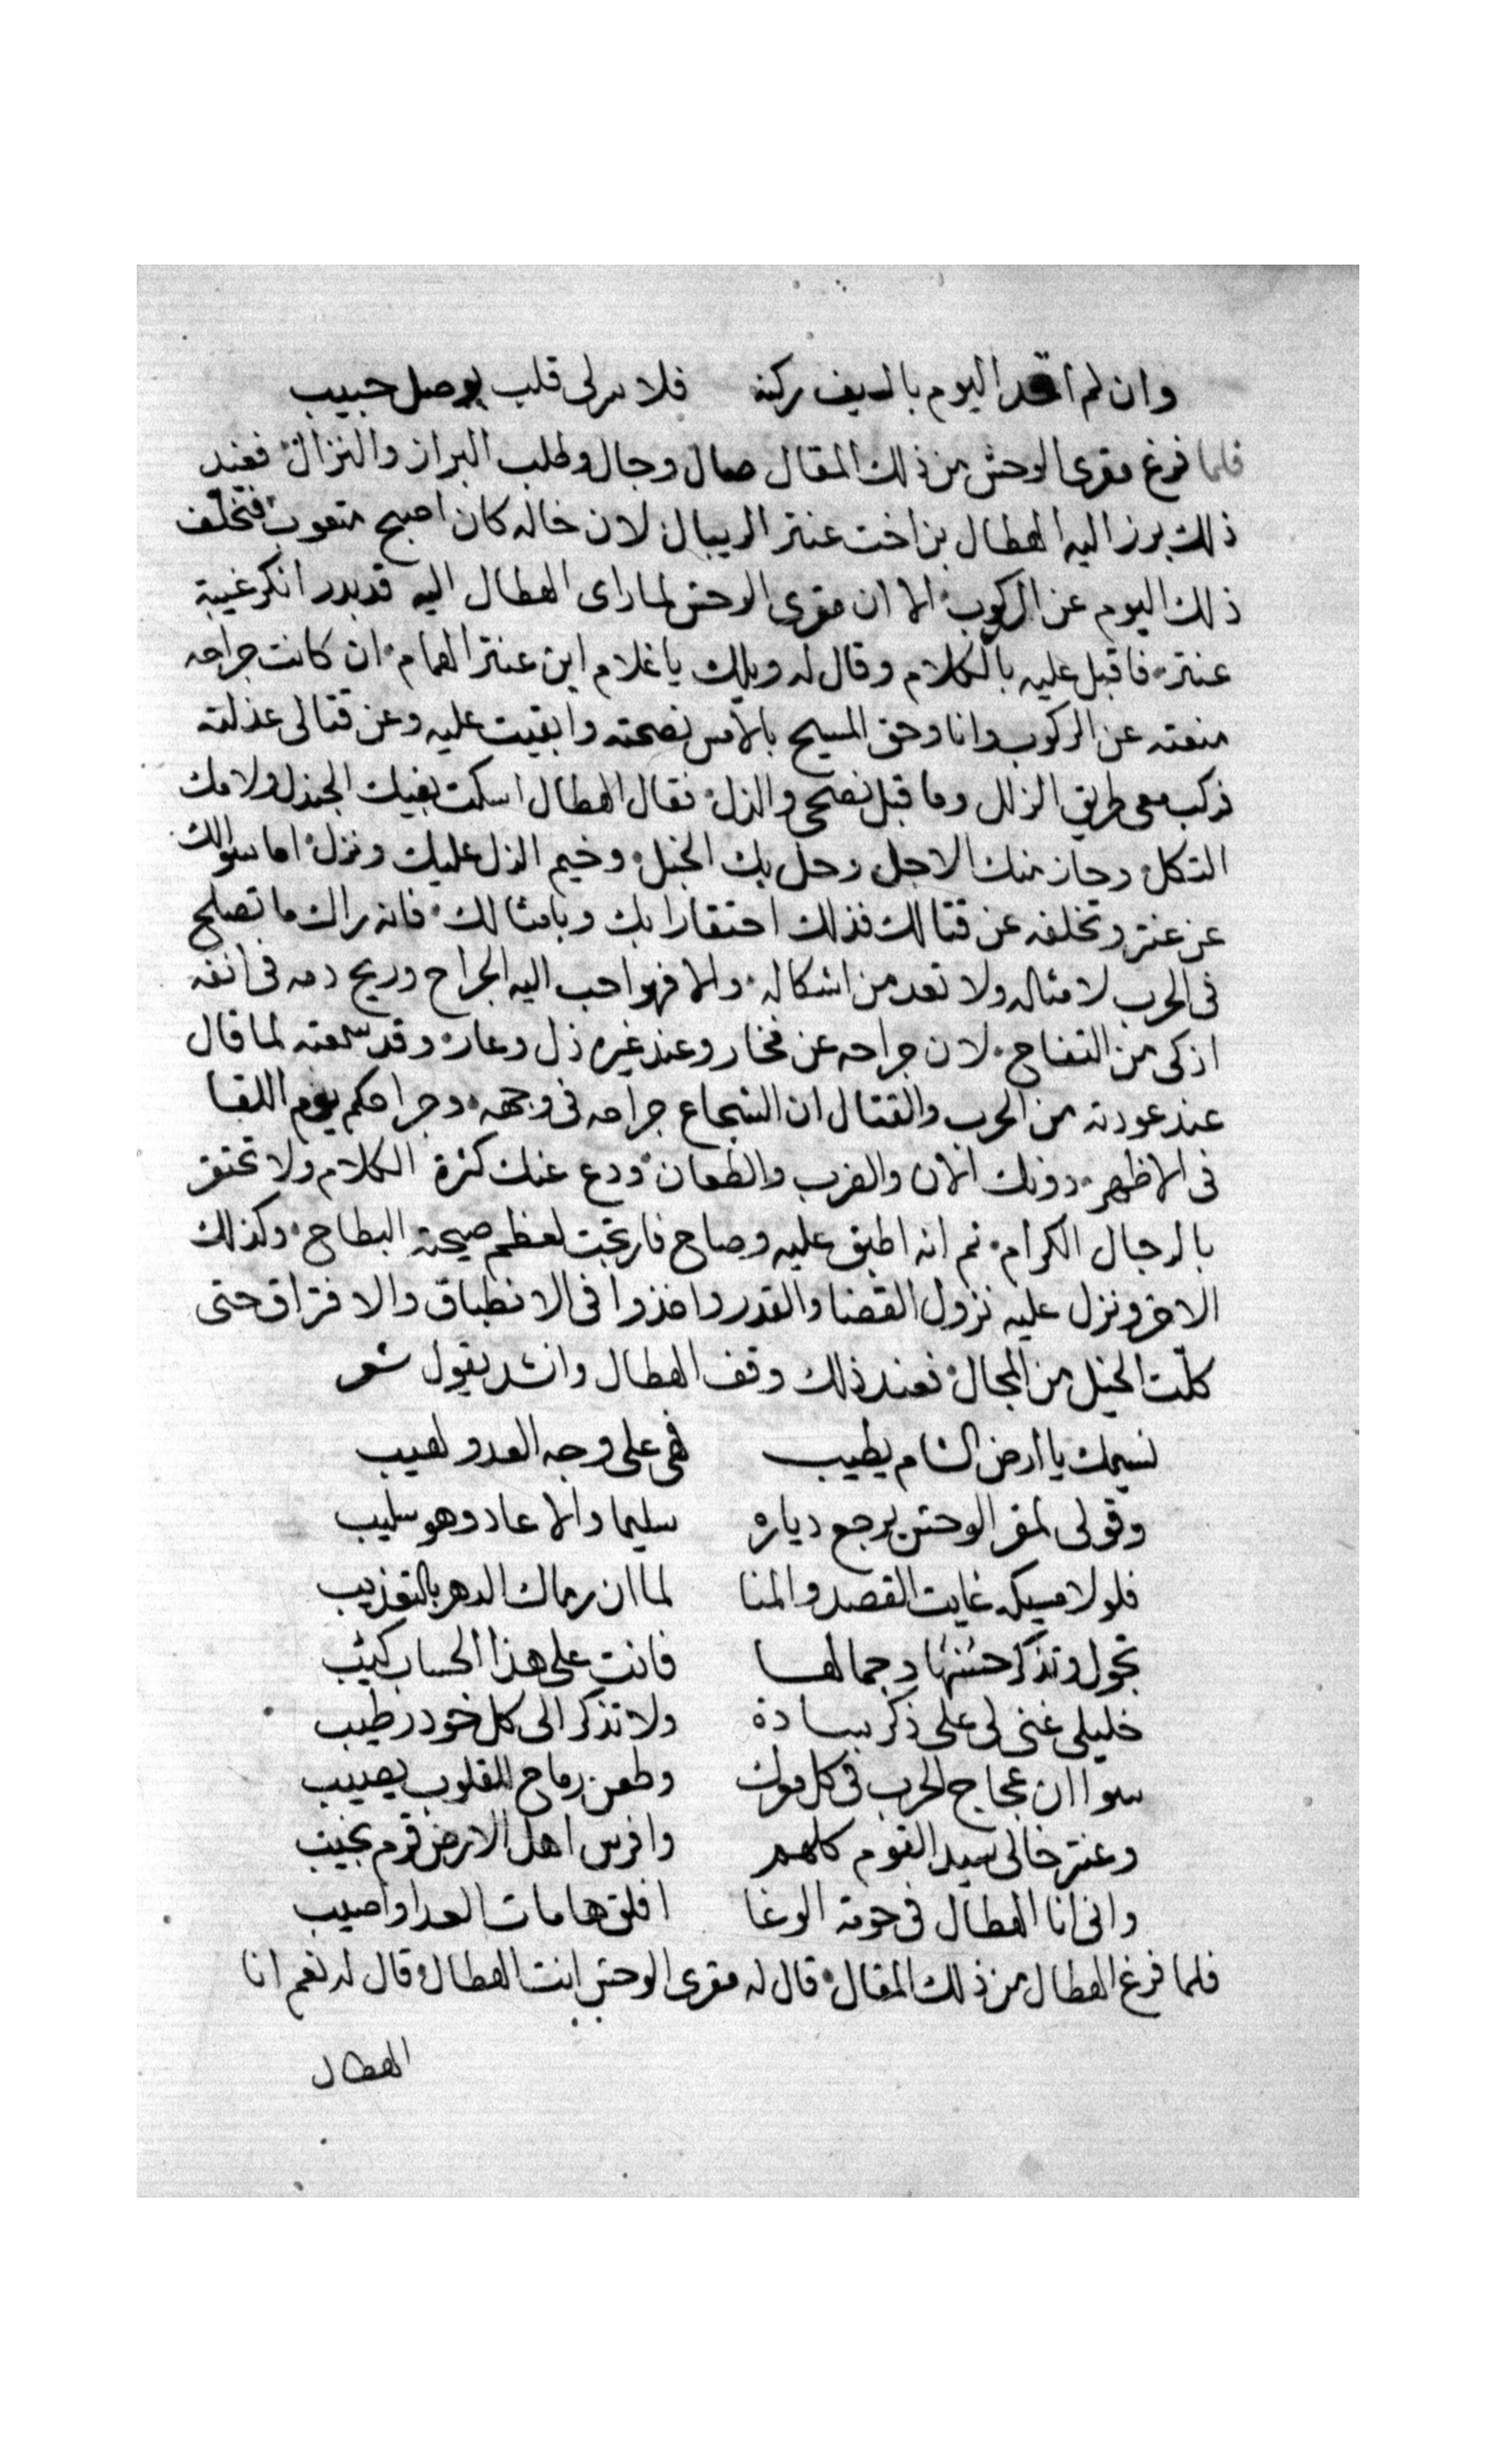 وان لم اقد اليوم بالسيف ركنه فلا سر لى قلب بوصل حبيب
فلما فرغ مقرى الوحش من ذلك المقال صال وجال وطلب البراز والنزال فعند
ذلك برز اليه الهطال بن اخت عنتر الريبال لان خاله كان اصبح متعوب فتخلف
ذلك اليوم عن الركوب الا ان مقرى الوحش لما راى الهطال اليه قد بدر انكر غيبة
عنتر فاقبل عليه بالكلام وقال له ويلك يا غلام اين عنتر الهمام ان كانت جراحه
منعته عن الركوب وانا وحق المسيح بالامس نصحته وابقيت عليه وعن قتالى عذلته
فركب معى طريق الزلل وما قبل نصحى والذل فقال الهطال اسكت بفيك الجندل ولامك
الثكل وحاز منك الاجل وحل بك الخبل وخيم الذل عليك ونزل اما سوالك
عن عنتر وتخلفه عن قتالك فذلك احتقارا بك وبامثالك فانه راك ما تصلح
فى الحرب لامثاله ولا تعد من اشكاله والا فهو احب اليه الجراح وريح دمه فى انفه
ازكى من التفاح لان جراحه عن فخار وعند غيره ذل وعار وقد سمعته لما قال
عند عودته من الحرب والقتال ان الشجاع جراحه فى وجهه وجراحكم يوم اللقا
فى الاظهر دونك الان والضرب والطعان ودع عنك كثرة الكلام ولا تحتقر
بالرجال الكرام ثم انه اطبق عليه وصاح فارتجت لعظم صيحته البطاح وكذلك
الاخر ونزل عليه نزول القضا والقدر واخذوا فى الانطباق والافتراق حتى
كلّت الخيل من المجال فعند ذلك وقف الهطال وانشد يقول شعر
نسيمك يا ارض الشام يطيب فهى على وجه العدو لهيب
وقولى لمقر الوحش يرجع دياره سليما والا عاد وهو سليب
فلولا مسيكه غايت القصد والمنا لما ان رماك الدهر بالتعذيب
تجول وتذكر حسنها وجمالها فانت على هذا الحساب كئيب
خليلى غنى لى على ذكر سادة ولا تذكر الى كل خود رطيب
سوا ان عجاج الحرب فى كل موك وطعن رماح للقلوب يصيب
وعنتر خالى سيد القوم كلهم وافرس اهل الارض قرم نجيب
وانى انا الهطال فى حومة الوغا افلق هامات العدا واصيب
فلما فرغ الهطال من ذلك المقال قال له مقرى الوحش انت الهطال قال له نعم انا
الهطال